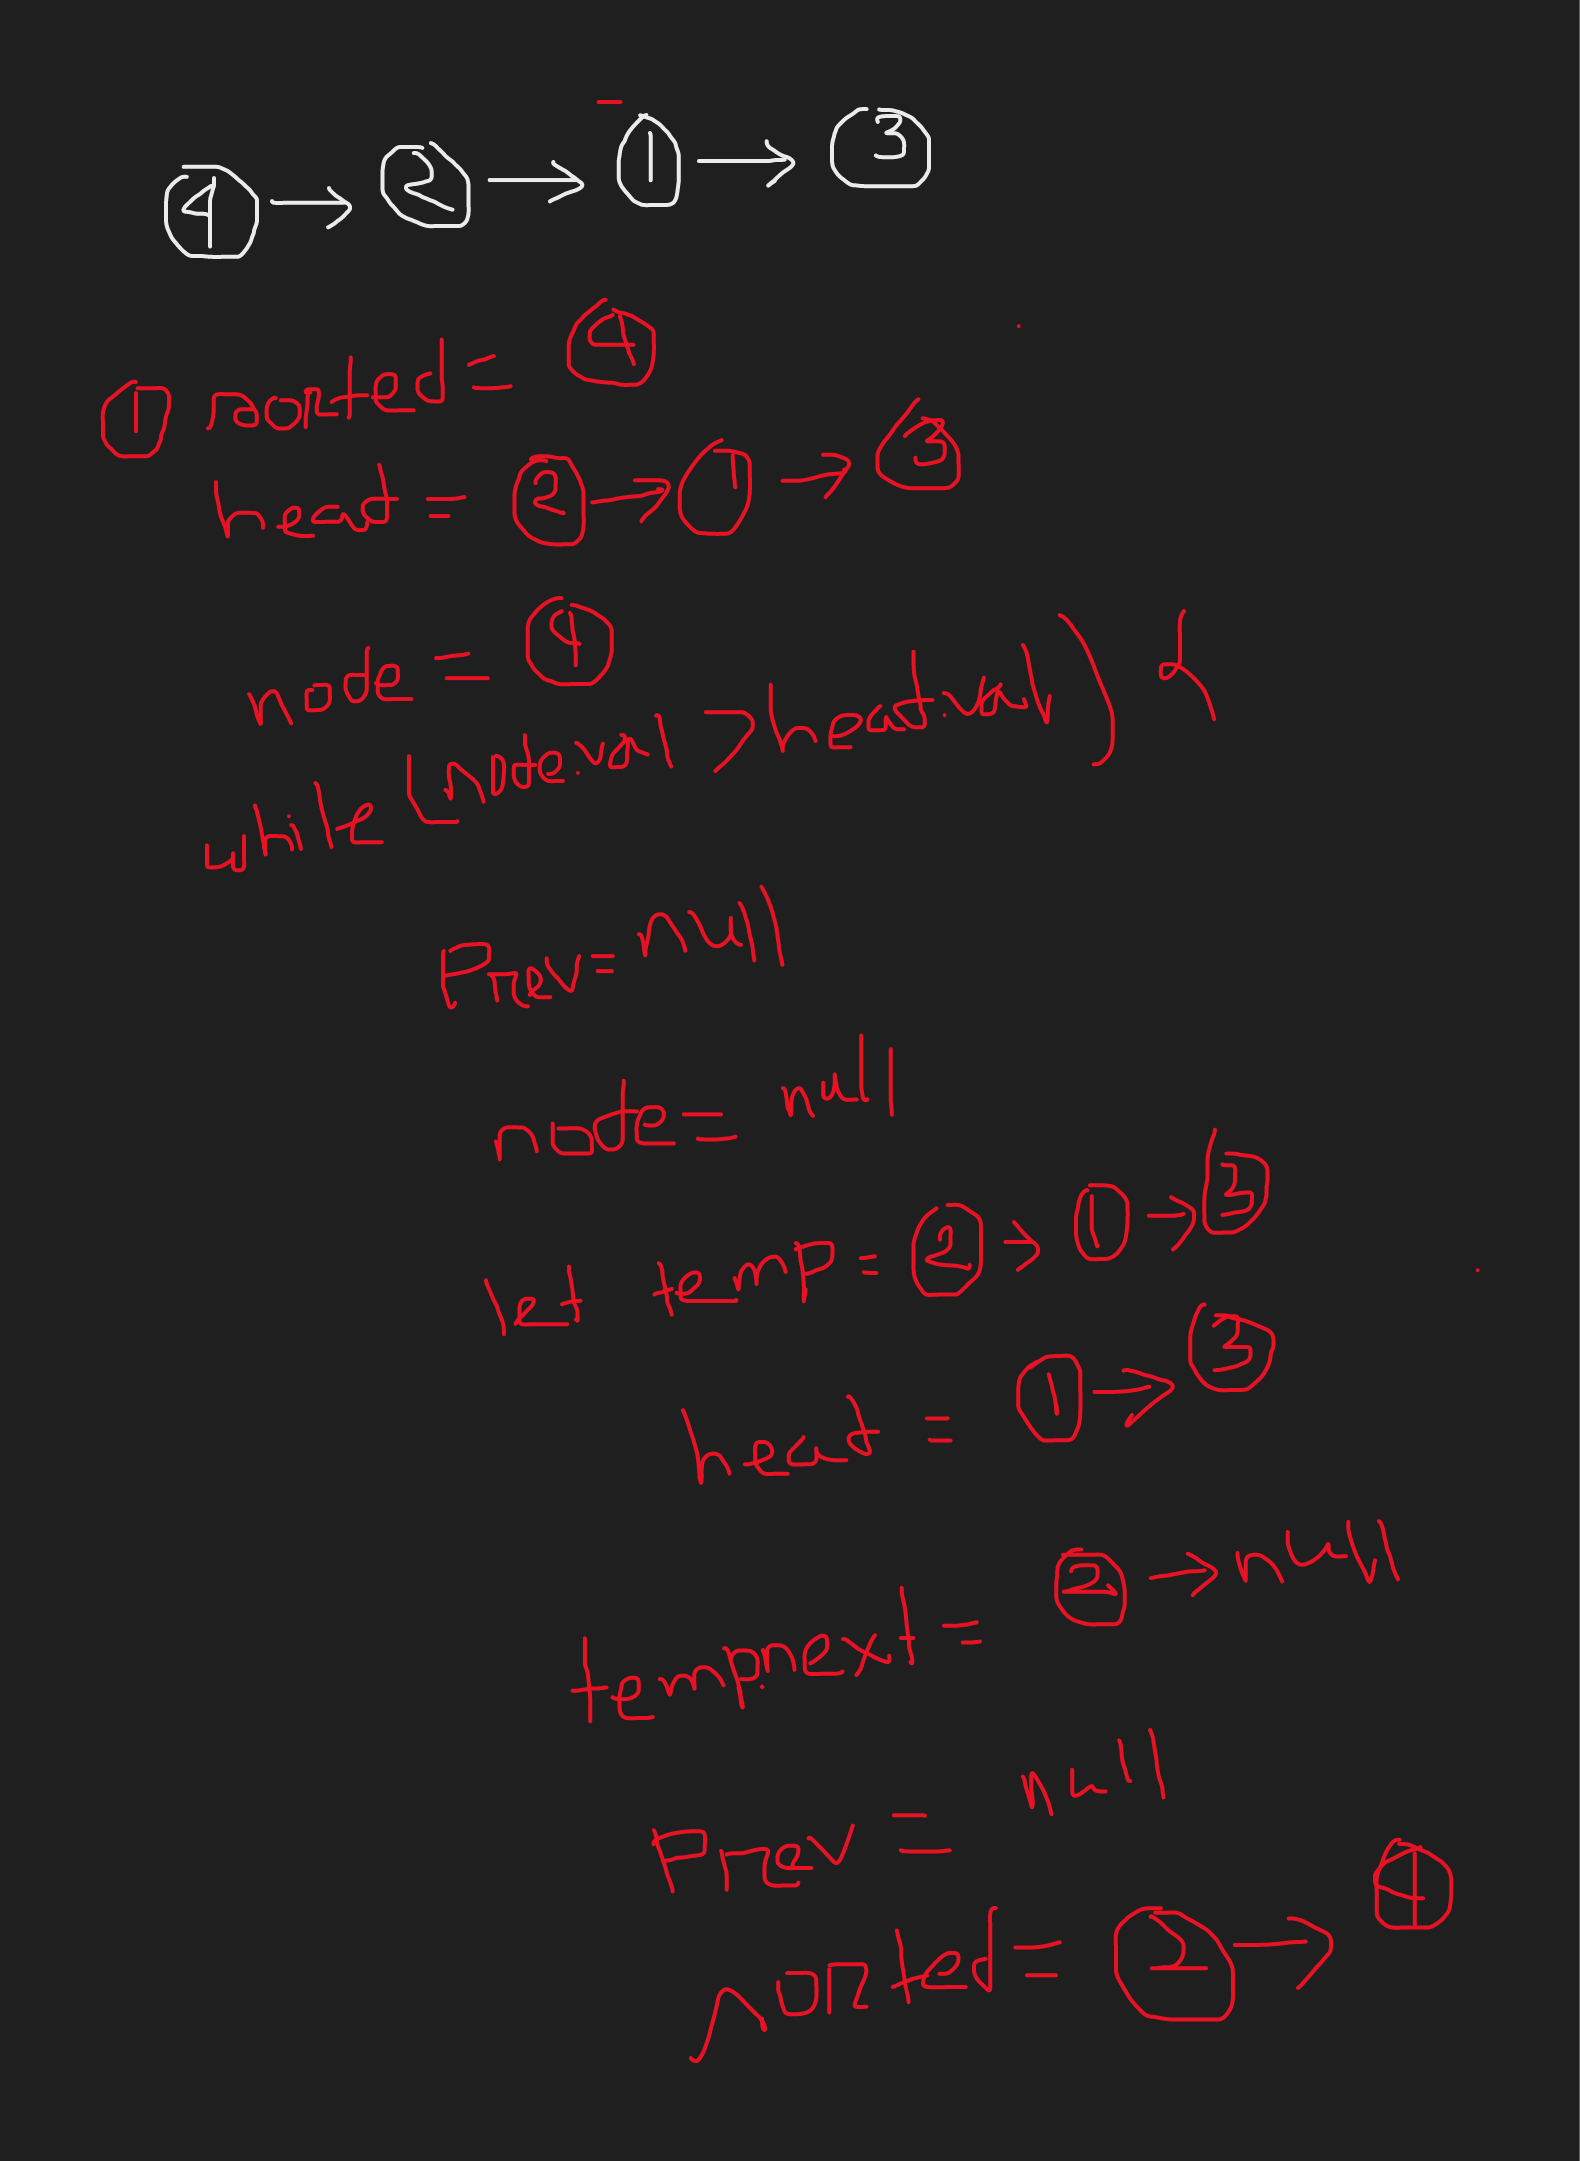 4 → 2 → 1 → 3
1 sorted = 4
head = 2 → 1 → 3
node = 4
while (node.val > head.val) {
Prev = null
node = null
let temp = 2 → 1 → 3
head = 1 → 3
temp.next = 2 → null
Prev = null
sorted = 2 → 4